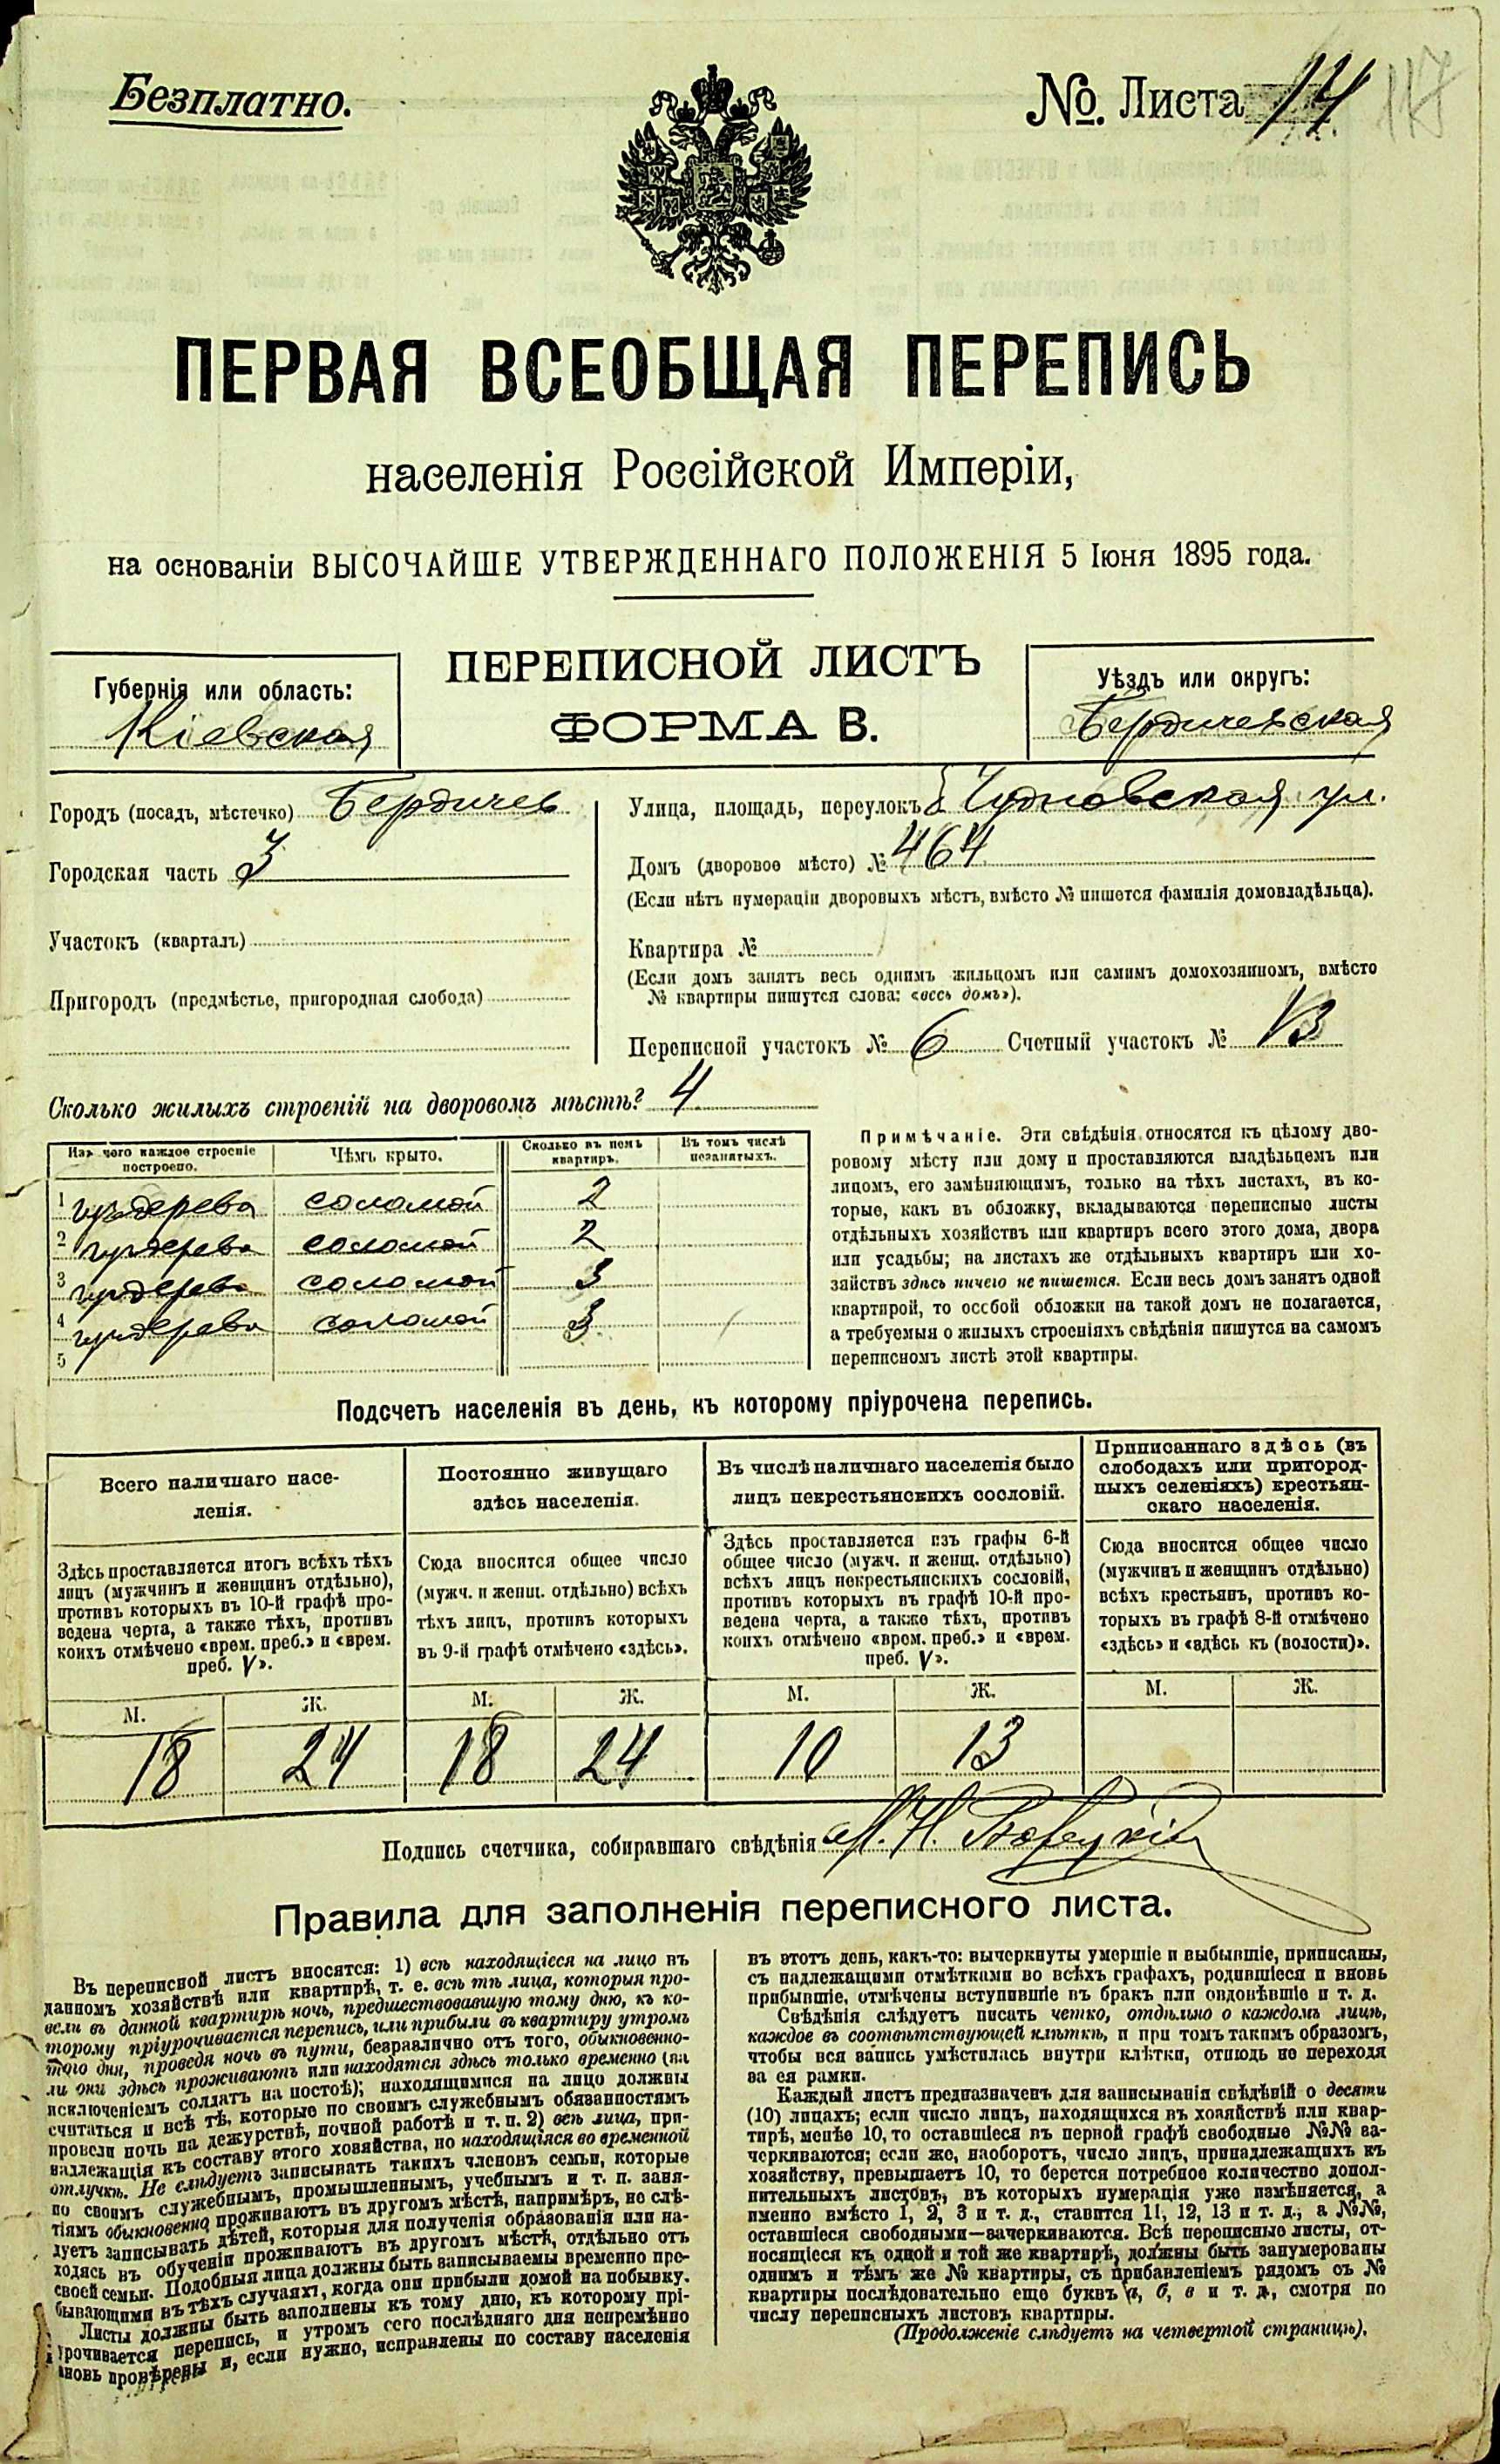 Безплатно.
№. Листа 14 117
ПЕРВАЯ ВСЕОБЩАЯ ПЕРЕПИСЬ
населенія Россійской Имперіи,
на основаніи ВЫСОЧАЙШЕ УТВЕРЖДЕННАГО ПОЛОЖЕНІЯ 5 Іюня 1895 года.
ПЕРЕПИСНОЙ ЛИСТЪ
ФОРМА В.
Губернія или область:
Кіевская
Уѣздъ или округъ:
Бердичевская
Городъ (посадъ, мѣстечко) Бердичев
Городская часть 3
Участокъ (кварталъ)
Пригородъ (предмѣстье, пригородная слобода)
Улица, площадь, переулокъ Б Чудновская ул.
Домъ (дворовое мѣсто) № 464
(Если нѣтъ нумераціи дворовыхъ мѣстъ, вмѣсто № пишется фамилія домовладѣльца).
Квартира №
(Если домъ занятъ весь однимъ жильцомъ или самимъ домохозяиномъ, вмѣсто
№ квартиры пишутся слова: «весь домъ»).
Переписной участокъ № 6 Счетный участокъ № 13
Сколько жилыхъ строеній на дворовомъ мѣстѣ? 4
Изъ чего каждое строеніе
построено.
Чѣмъ крыто.
Сколько въ немъ
квартиръ.
Въ томъ числѣ
незанятыхъ.
1 изъ дерева соломой 2
2 изъ дерева соломой 2
3 изъ дерева соломой 3
4 изъ дерева соломой 3
5
Примѣчаніе. Эти свѣдѣнія относятся къ цѣлому дво-
ровому мѣсту или дому и проставляются владѣльцемъ или
лицомъ, его замѣняющимъ, только на тѣхъ листахъ, въ ко-
торые, какъ въ обложку, вкладываются переписные листы
отдѣльныхъ хозяйствъ или квартиръ всего этого дома, двора
или усадьбы; на листахъ же отдѣльныхъ квартиръ или хо-
зяйствъ здѣсь ничего не пишется. Если весь домъ занятъ одной
квартирой, то особой обложки на такой домъ не полагается,
а требуемыя о жилыхъ строеніяхъ свѣдѣнія пишутся на самомъ
переписномъ листѣ этой квартиры.
Подсчетъ населенія въ день, къ которому пріурочена перепись.
Всего наличнаго насе-
ленія.
Здѣсь проставляется итогъ всѣхъ тѣхъ
лицъ (мужчинъ и женщинъ отдѣльно),
противъ которыхъ въ 10-й графѣ про-
ведена черта, а также тѣхъ, противъ
коихъ отмѣчено «врем. преб.» и «врем.
преб. V».
М. Ж.
18 24
Постоянно живущаго
здѣсь населенія.
Сюда вносится общее число
(мужч. и женщ. отдѣльно) всѣхъ
тѣхъ лицъ, противъ которыхъ
въ 9-й графѣ отмѣчено «здѣсь».
М. Ж.
18 24
Въ числѣ наличнаго населенія было
лицъ некрестьянскихъ сословій.
Здѣсь проставляется изъ графы 6-й
общее число (мужч. и женщ. отдѣльно)
всѣхъ лицъ некрестьянскихъ сословій,
противъ которыхъ въ графѣ 10-й про-
ведена черта, а также тѣхъ, противъ
коихъ отмѣчено «врем. преб.» и «врем.
преб. V».
М. Ж.
10 13
Приписаннаго здѣсь (въ
слободахъ или пригород-
ныхъ селеніяхъ) крестьян-
скаго населенія.
Сюда вносится общее число
(мужчинъ и женщинъ отдѣльно)
всѣхъ крестьянъ, противъ ко-
торыхъ въ графѣ 8-й отмѣчено
«здѣсь» и «здѣсь къ (волости)».
М. Ж.
Подпись счетчика, собиравшаго свѣдѣнія
Правила для заполненія переписного листа.
Въ переписной листъ вносятся: 1) всѣ находящіеся на лицо въ
данномъ хозяйствѣ или квартирѣ, т. е. всѣ тѣ лица, которыя про-
вели въ данной квартирѣ ночь, предшествовавшую тому дню, къ ко-
торому пріурочивается перепись, или прибыли въ квартиру утромъ
того дня, проведя ночь въ пути, безразлично отъ того, обыкновенно-
ли они здѣсь проживаютъ или находятся здѣсь только временно (за
исключеніемъ солдатъ на постоѣ); находящимися на лицо должны
считаться и всѣ тѣ, которые по своимъ служебнымъ обязанностямъ
провели ночь на дежурствѣ, ночной работѣ и т. п. 2) всѣ лица, при-
надлежащія къ составу этого хозяйства, но находящіяся во временной
отлучкѣ. Не слѣдуетъ записывать такихъ членовъ семьи, которые
по своимъ служебнымъ, промышленнымъ, учебнымъ и т. п. заня-
тіямъ обыкновенно проживаютъ въ другомъ мѣстѣ, напримѣръ, не слѣ-
дуетъ записывать дѣтей, которыя для полученія образованія или на-
ходясь въ обученіи проживаютъ въ другомъ мѣстѣ, отдѣльно отъ
своей семьи. Подобныя лица должны быть записываемы временно пре-
бывающими въ тѣхъ случаяхъ, когда они прибыли домой на побывку.
Листы должны быть заполнены къ тому дню, къ которому прі-
урочивается перепись, и утромъ сего послѣдняго дня непремѣнно
вновь провѣрены и, если нужно, исправлены по составу населенія
въ этотъ день, какъ-то: вычеркнуты умершіе и выбывшіе, приписаны,
съ надлежащими отмѣтками во всѣхъ графахъ, родившіеся и вновь
прибывшіе, отмѣчены вступившіе въ бракъ или овдовѣвшіе и т. д.
Свѣдѣнія слѣдуетъ писать четко, отдѣльно о каждомъ лицѣ,
каждое въ соотвѣтствующей клѣткѣ, и при томъ такимъ образомъ,
чтобы вся запись умѣстилась внутри клѣтки, отнюдь не переходя
за ея рамки.
Каждый листъ предназначенъ для записыванія свѣдѣній о десяти
(10) лицахъ; если число лицъ, находящихся въ хозяйствѣ или квар-
тирѣ, менѣе 10, то оставшіеся въ первой графѣ свободные №№ за-
черкиваются; если же, наоборотъ, число лицъ, принадлежащихъ къ
хозяйству, превышаетъ 10, то берется потребное количество допол-
нительныхъ листовъ, въ которыхъ нумерація уже измѣняется, а
именно вмѣсто 1, 2, 3 и т. д., ставится 11, 12, 13 и т. д., а №№,
оставшіеся свободными—зачеркиваются. Всѣ переписные листы, от-
носящіеся къ одной и той же квартирѣ, должны быть занумерованы
однимъ и тѣмъ же № квартиры, съ прибавленіемъ рядомъ съ №
квартиры послѣдовательно еще буквъ а, б, в и т. д., смотря по
числу переписныхъ листовъ квартиры.
(Продолженіе слѣдуетъ на четвертой страницѣ).